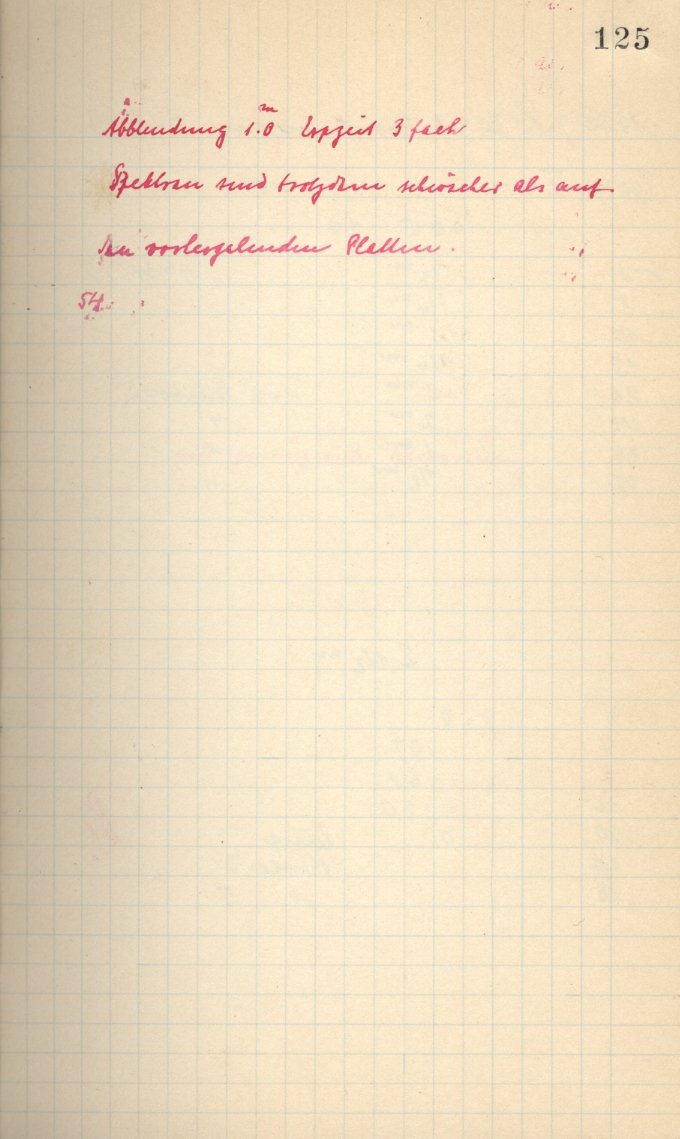 125
Abblendung 1.0ᵐ Expzeit 3 fach
Spektren sind trotzdem schwächer als auf
den vorhergehenden Platten.
54